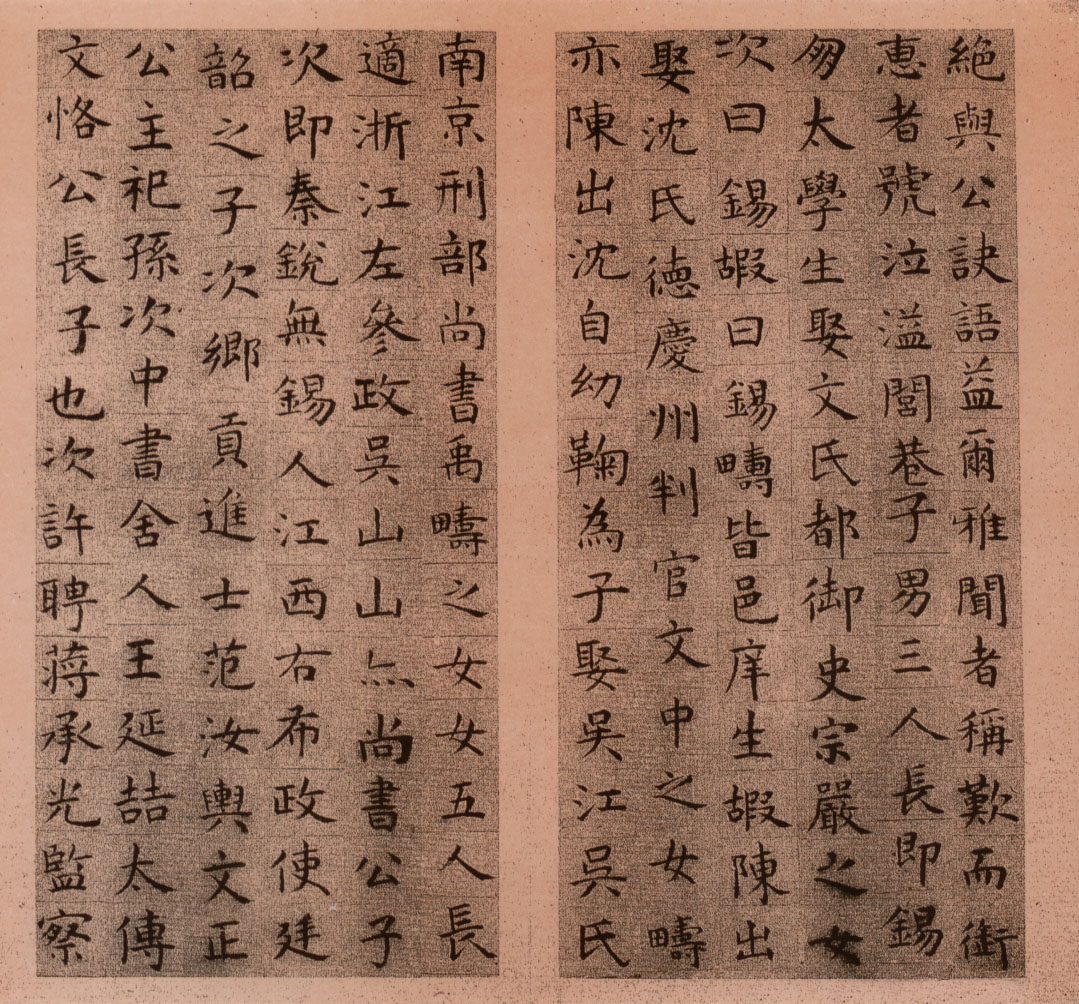 絕與公訣語益爾雅聞者稱歎而銜
惠者號泣溢閭巷子男三人長即錫
匆太學生娶文氏都御史宗嚴之女
次曰錫嘏曰錫疇皆邑庠生嘏陳出
娶沈氏德慶州判官文中之女疇
亦陳出沈自幼鞠為子娶吳江吳氏
南京刑部尚書禹疇之女女五人長
適浙江左參政吳山山灬尚書公子
次即秦銳無錫人江西右布政使廷
韶之子次鄉貢進士范汝輿文正
公主祀孫次中書舍人王延喆太傅
文恪公長子也次許聘蔣承光監察